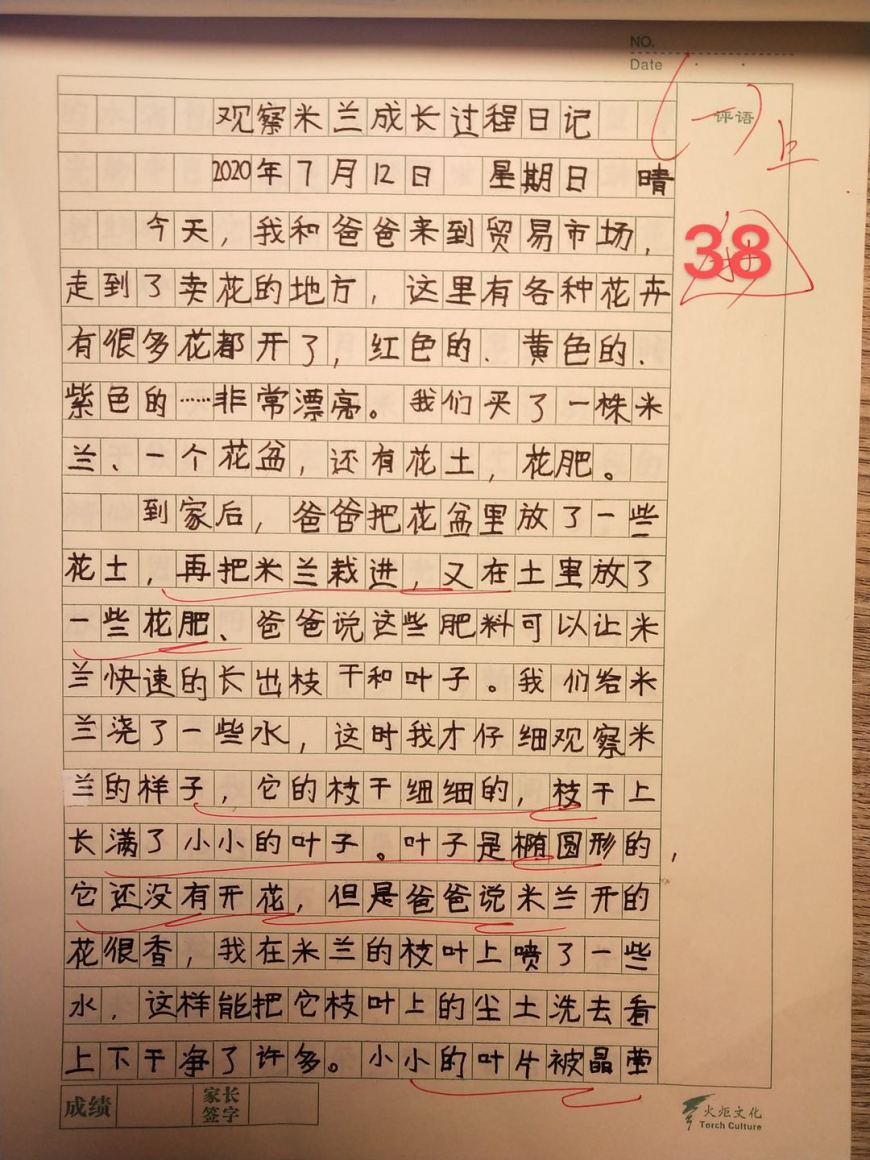 NO.
Date
评语
上
38
观察米兰成长过程日记
2020年7月12日 星期日 晴
今天，我和爸爸来到贸易市场，
走到了卖花的地方，这里有各种花卉
有很多花都开了，红色的、黄色的、
紫色的……非常漂亮。我们买了一株米
兰、一个花盆，还有花土，花肥。
到家后，爸爸把花盆里放了一些
花土，再把米兰栽进，又在土里放了
一些花肥、爸爸说这些肥料可以让米
兰快速的长出枝干和叶子。我们给米
兰浇了一些水，这时我才仔细观察米
兰的样子，它的枝干细细的，枝干上
长满了小小的叶子。叶子是椭圆形的，
它还没有开花，但是爸爸说米兰开的
花很香，我在米兰的枝叶上喷了一些
水，这样能把它枝叶上的尘土洗去看
上下干净了许多。小小的叶片被晶莹
成绩
家长
签字
火炬文化
Torch Culture